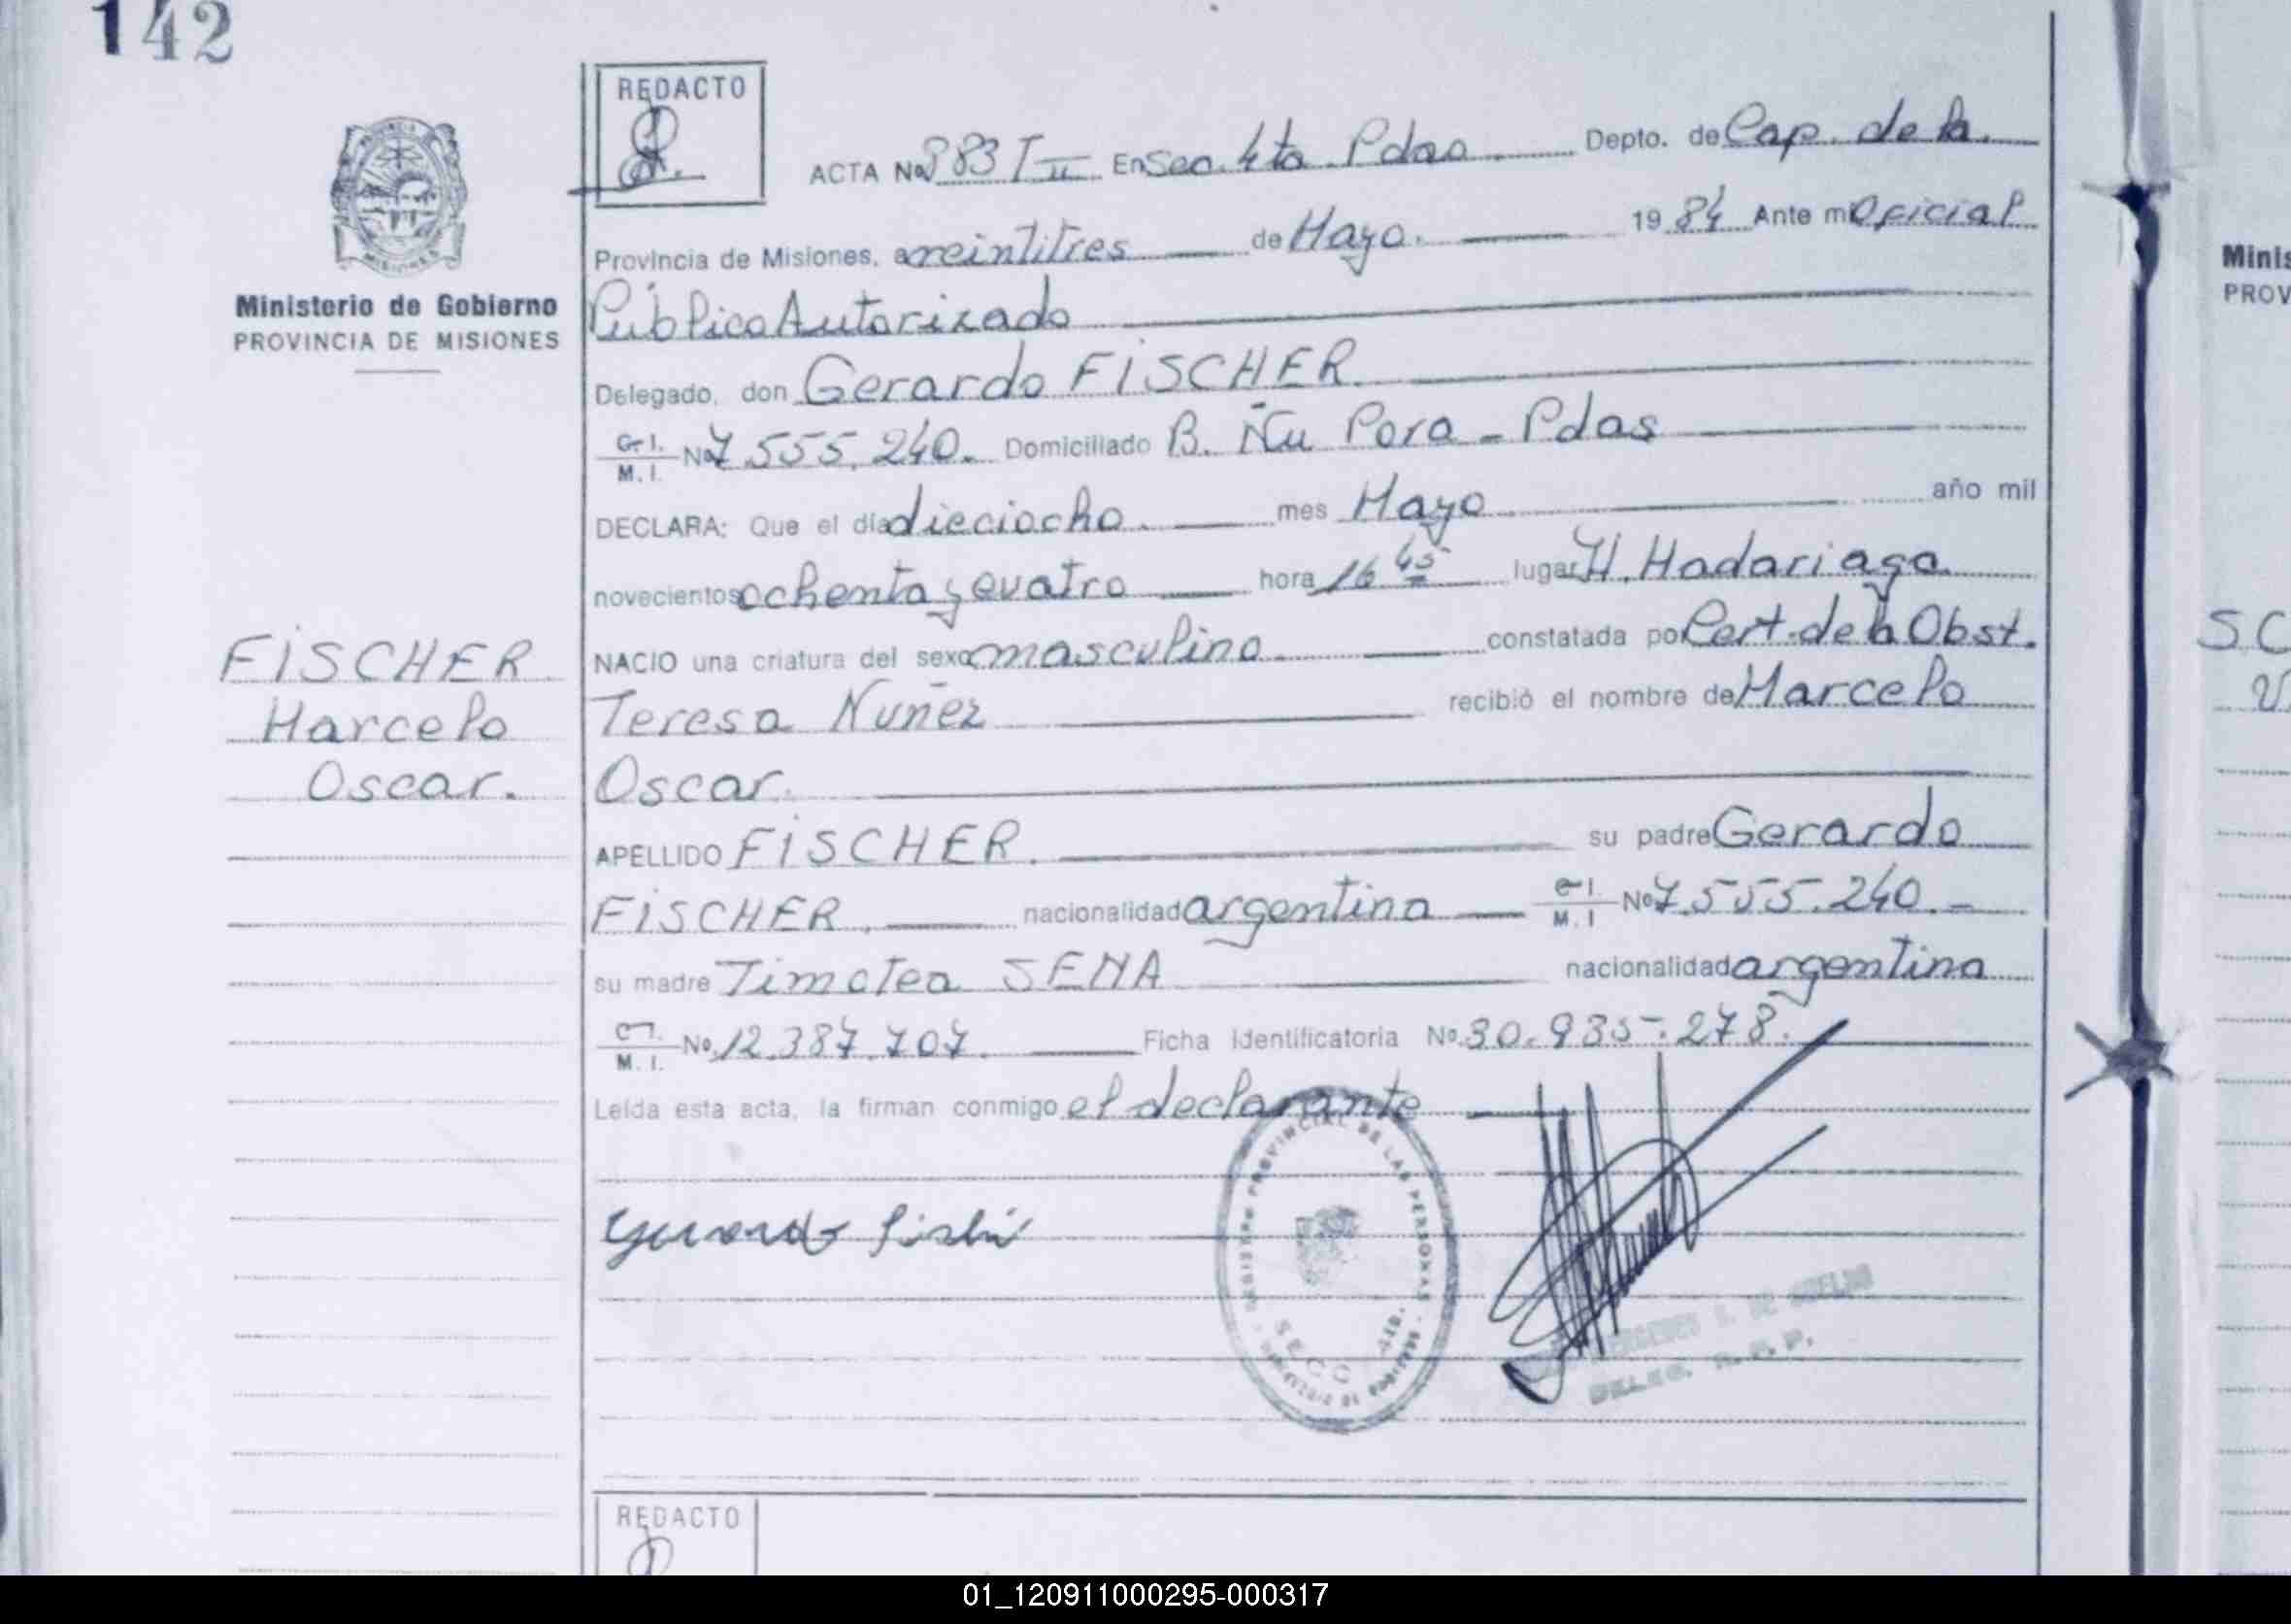 142
REDACTO
ACTA No 983 T II En Sec. 4ta Pdas Depto. de Cap. de la
Provincia de Misiones, a veintitres de Mayo. 19 84 Ante mi Oficial
Público Autorizado
Ministerio de Gobierno
PROVINCIA DE MISIONES
Delegado, don Gerardo FISCHER.
C. I. M. I. No 7.555.240. Domiciliado B. Ñu Pora - Pdas
DECLARA: Que el día dieciocho. mes Mayo año mil
novecientos ochenta y cuatro hora 16 45 lugar H. Madariaga
NACIO una criatura del sexo masculino constatada por Cert. de la Obst.
Teresa Nuñez recibió el nombre de Marcelo
Oscar.
APELLIDO FISCHER. su padre Gerardo
FISCHER. nacionalidad argentina C. I. M. I No 7.555.240.-
su madre Timotea SENA nacionalidad argentina
C. I. M. I. No 12.387.707. Ficha Identificatoria No 30.935.278.
Leída esta acta, la firman conmigo el declarante
FISCHER
Marcelo
Oscar.
REGISTRO PROVINCIAL DE LAS PERSONAS
SECC 4ta.
DELEG. R. P. P.
REDACTO
Minis
PROV
SC
01_120911000295-000317